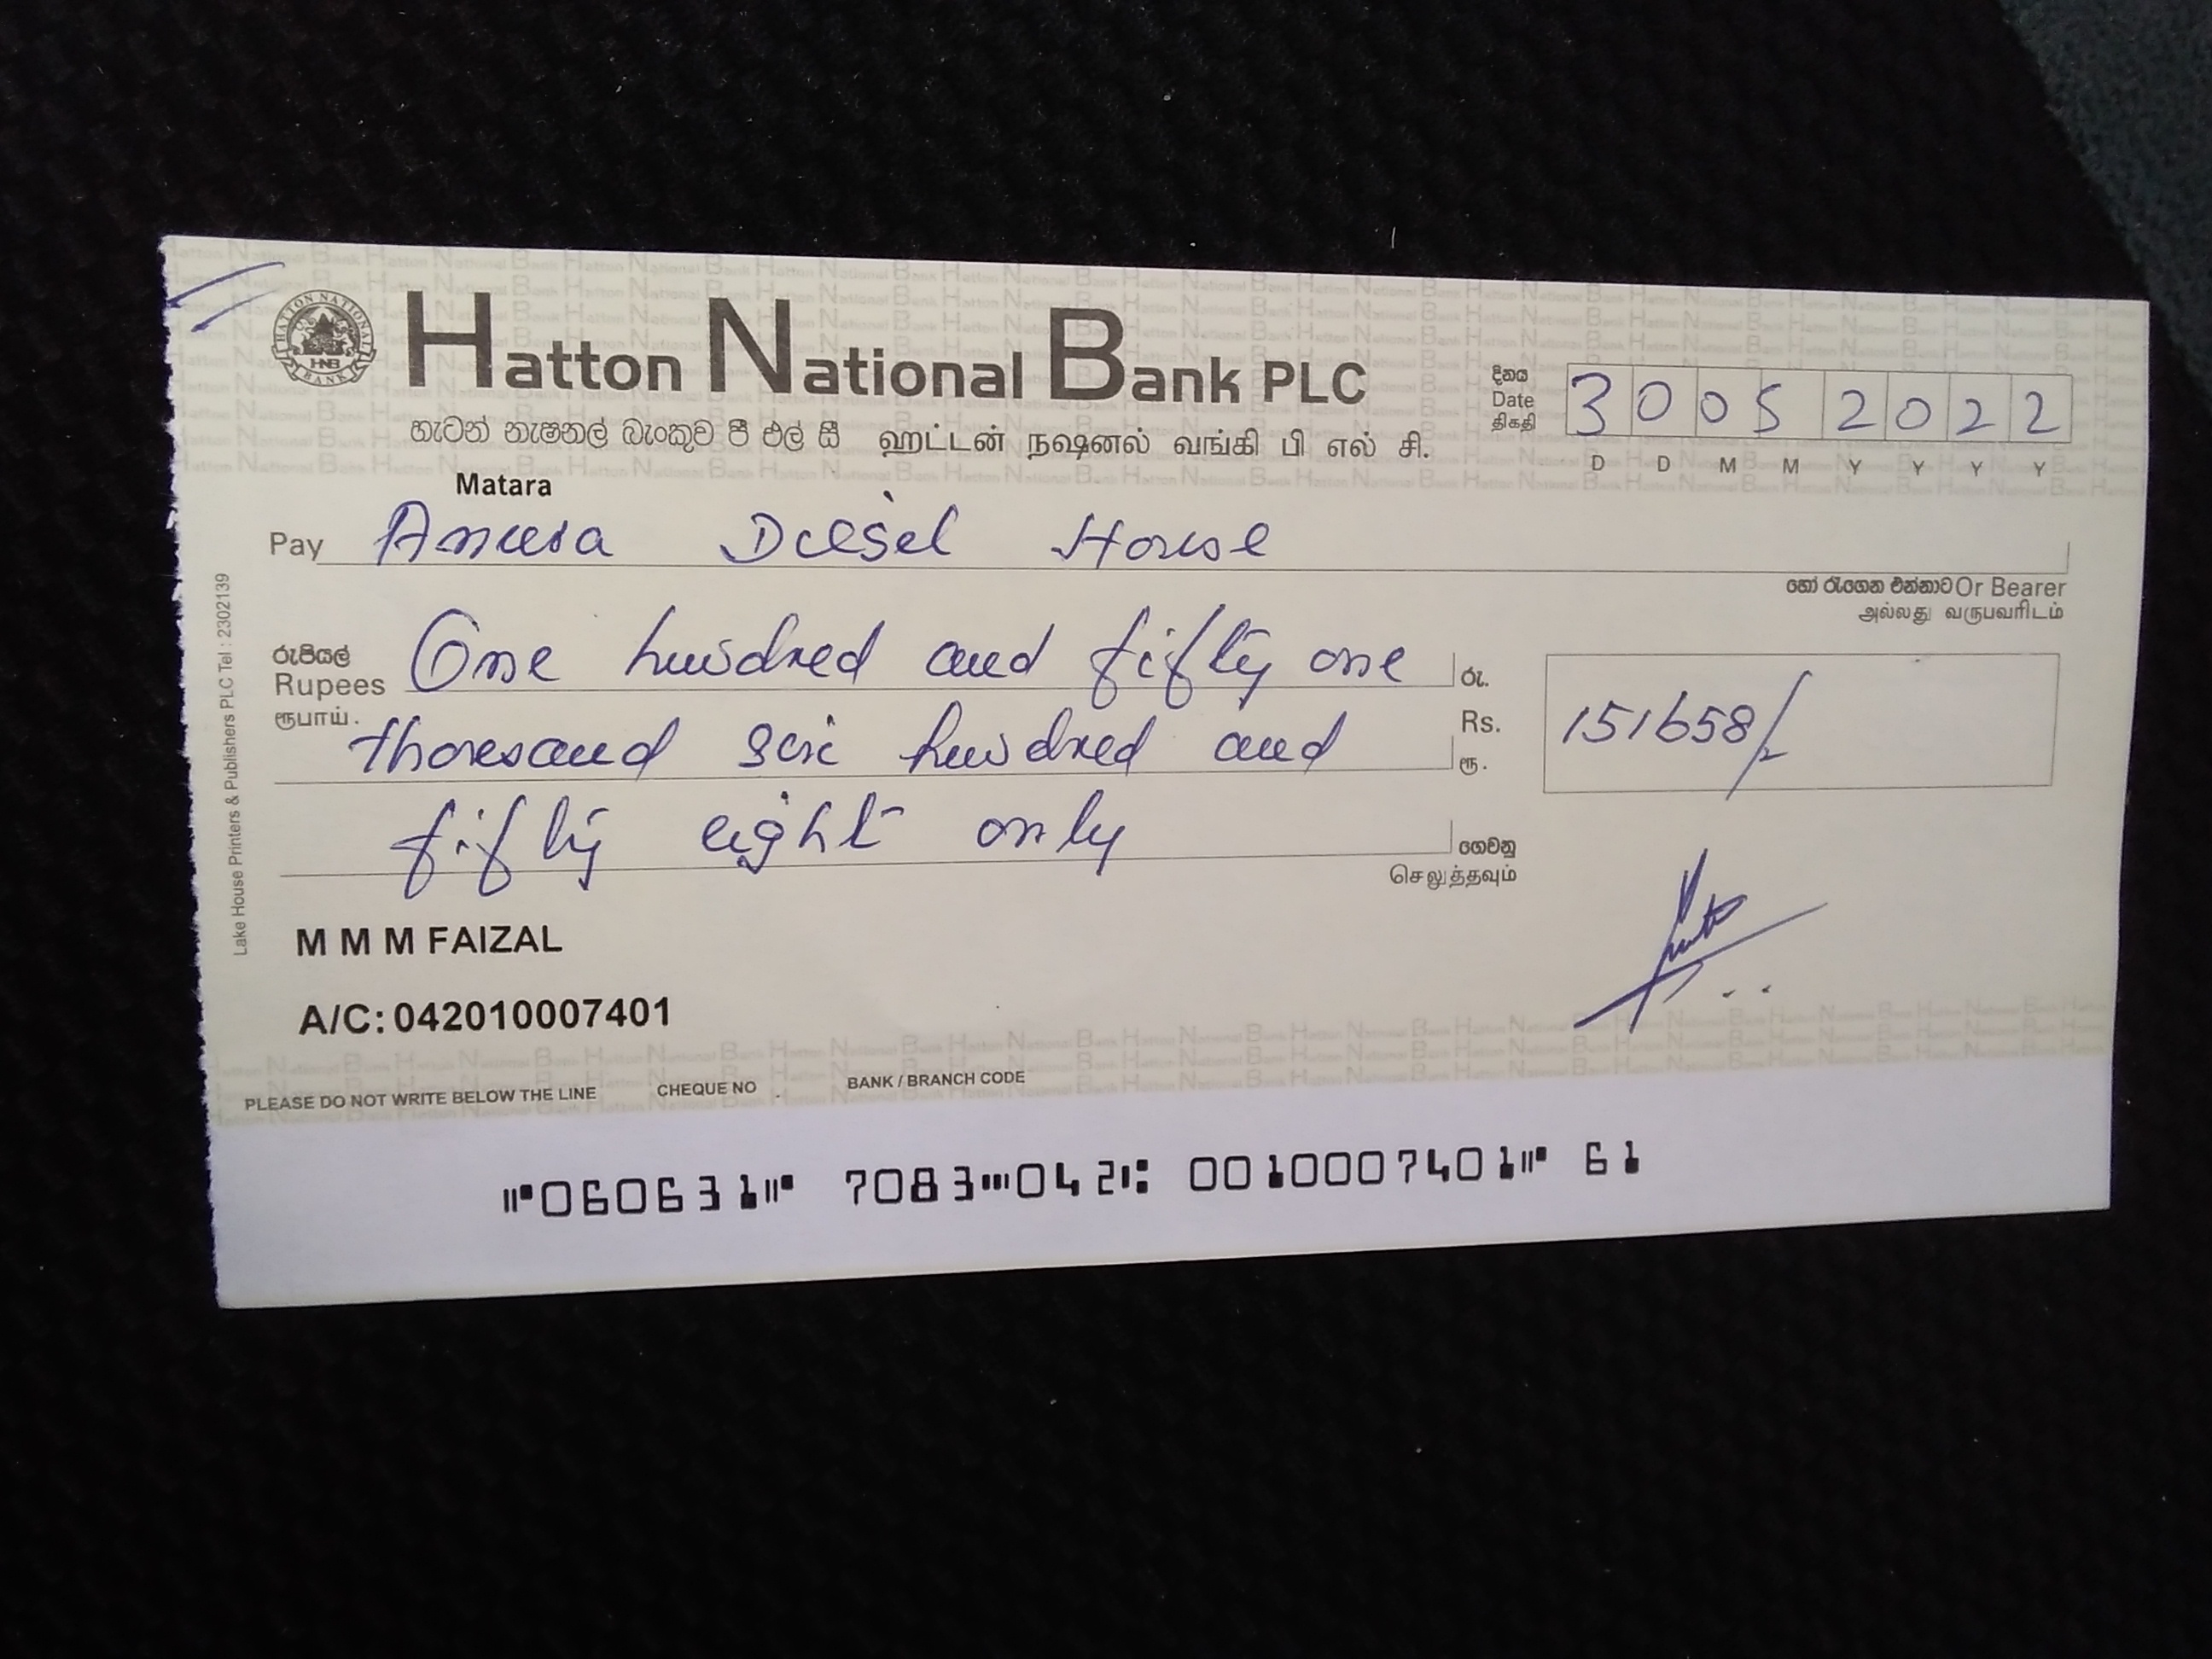 HATTON NATIONAL BANK
HNB
Hatton National Bank PLC
හැටන් නැෂනල් බැංකුව පී එල් සී ஹட்டன் நஷனல் வங்கி பி எல் சி.
දිනය
Date
திகதி
3 0 0 5 2 0 2 2
D D M M Y Y Y Y
Matara
Pay Anura Diesel House
හෝ රැගෙන එන්නාට Or Bearer
அல்லது வருபவரிடம்
රුපියල්
Rupees
ரூபாய்.
One hundred and fifty one
thousand six hundred and
fifty eight only
රු.
Rs.
ரூ.
151658/-
ගෙවනු
செலுத்தவும்
M M M FAIZAL
A/C: 042010007401
PLEASE DO NOT WRITE BELOW THE LINE CHEQUE NO BANK / BRANCH CODE
060631 7083 042 0010007401 61
Lake House Printers & Publishers PLC Tel : 2302139